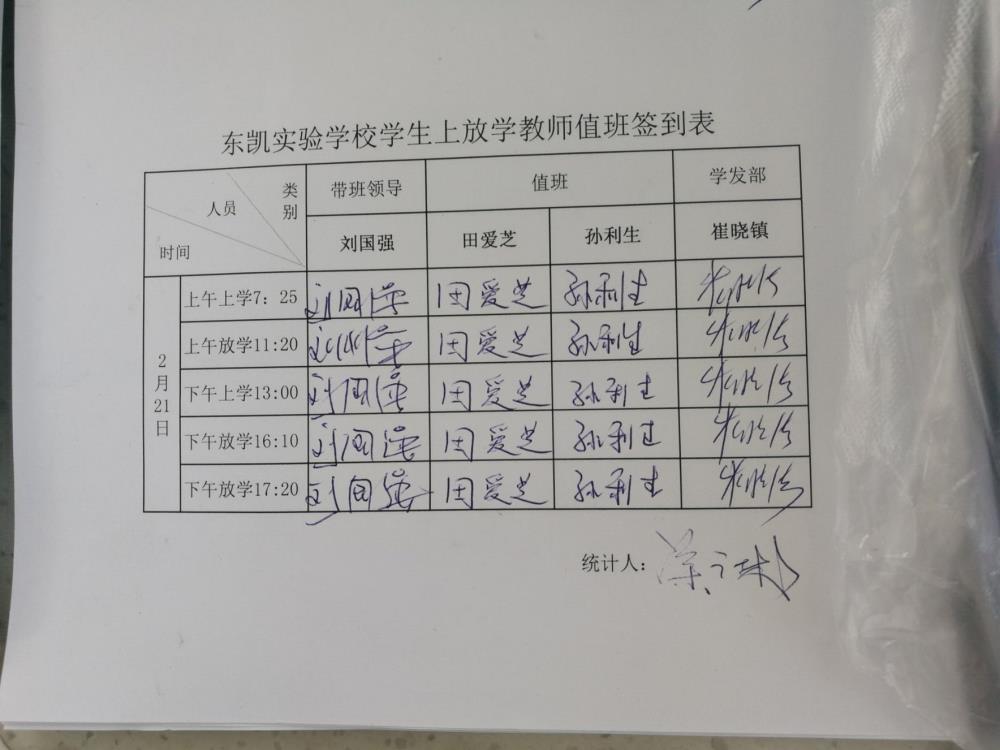 东凯实验学校学生上放学教师值班签到表
类别 人员 时间 带班领导 值班 学发部
刘国强 田爱芝 孙利生 崔晓镇
2月21日
上午上学7：25 刘国强 田爱芝 孙利生
上午放学11:20 刘国强 田爱芝 孙利生
下午上学13:00 刘国强 田爱芝 孙利生
下午放学16:10 刘国强 田爱芝 孙利生
下午放学17:20 刘国强 田爱芝 孙利生
统计人：